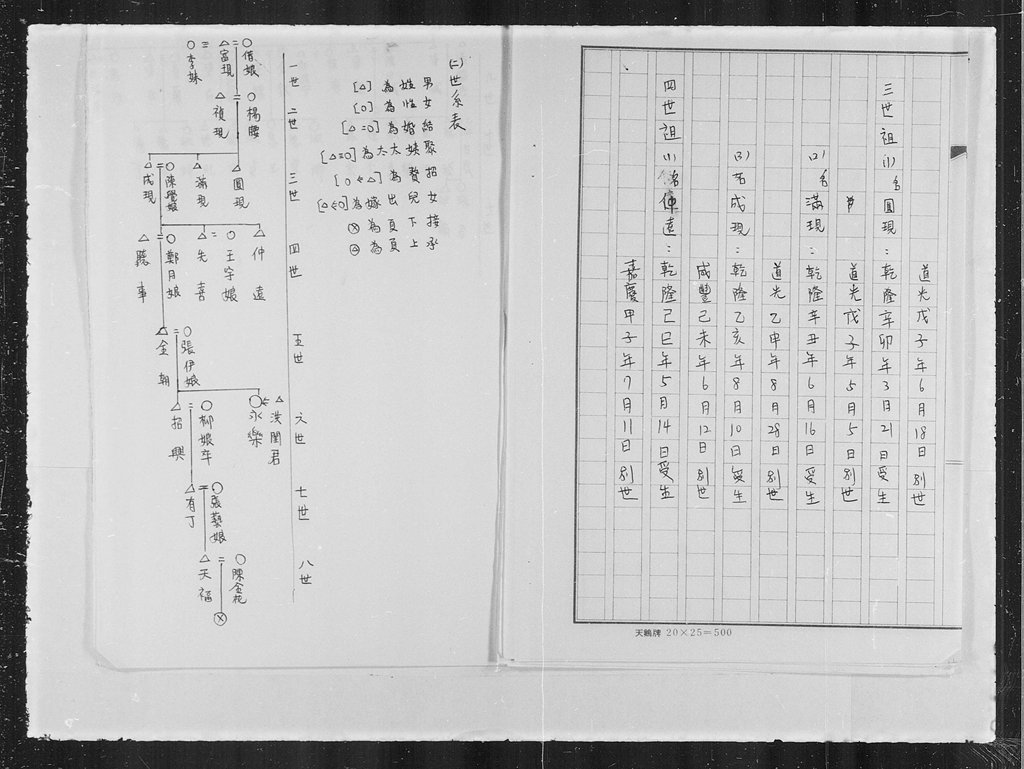 三世祖(1)名圓現：乾隆辛卯年3日21日受生
道光戊子年6月18日別世
(2)名滿現：乾隆辛丑年6月16日受生
道光戊子年5月5日別世
(3)名成現：乾隆乙亥年8月10日受生
道光乙申年8月28日別世
四世祖(1)仲遠：乾隆己巳年5月14日受生
咸豐己未年6月12日別世
嘉慶甲子年7月11日別世
天鵝牌 20×25=500
(二)世系表
男姓為[△]
女性為[○]
結婚為[△=○]
聚姨太太為[△≡○]
招贅為[○←△]
女兒出嫁為[△←○]
接下頁為ⓧ
承上頁為
一世 二世 三世 四世 五世 六世 七世 八世
○=△=○
李妹 富現 借娘
△=○
禎現 楊腰
△=○ △ △
成現 陳聲娘 滿現 圓現
△=○ △=○ △
聽事 鄭月娘 先喜 王字娘 仲遠
△=○
金朝 張伊娘
△=○ ○←△
招興 柳娘年 永樂 洪閨君
△=○
有丁 張藝娘
△=○
天福 陳金花
ⓧ